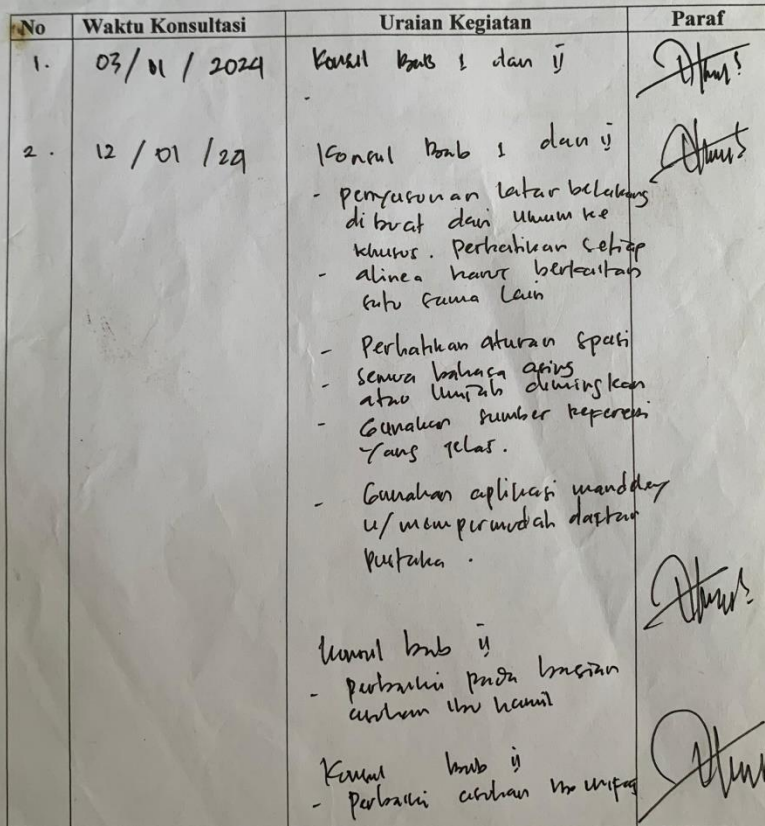 No Waktu Konsultasi Uraian Kegiatan Paraf
1. 03/01/2024 Konsul Bab 1 dan ij
2. 12/01/24 Konsul Bab 1 dan ij
- penyusunan latar belakang
dibuat dari umum ke
khusus. Perhatikan setiap
- alinea harus berkaitan
satu sama lain
- Perhatikan aturan spasi
- semua bahasa asing
atau dimiringkan
- Gunakan sumber referensi
yang jelas.
- Gunakan aplikasi manddey
u/ mempermudah daftar
pustaka.
Konsul bab ij
- perbaiki pada bagian
asuhan ibu hamil
Konsul bab ij
- Perbaiki asuhan ibu nifas